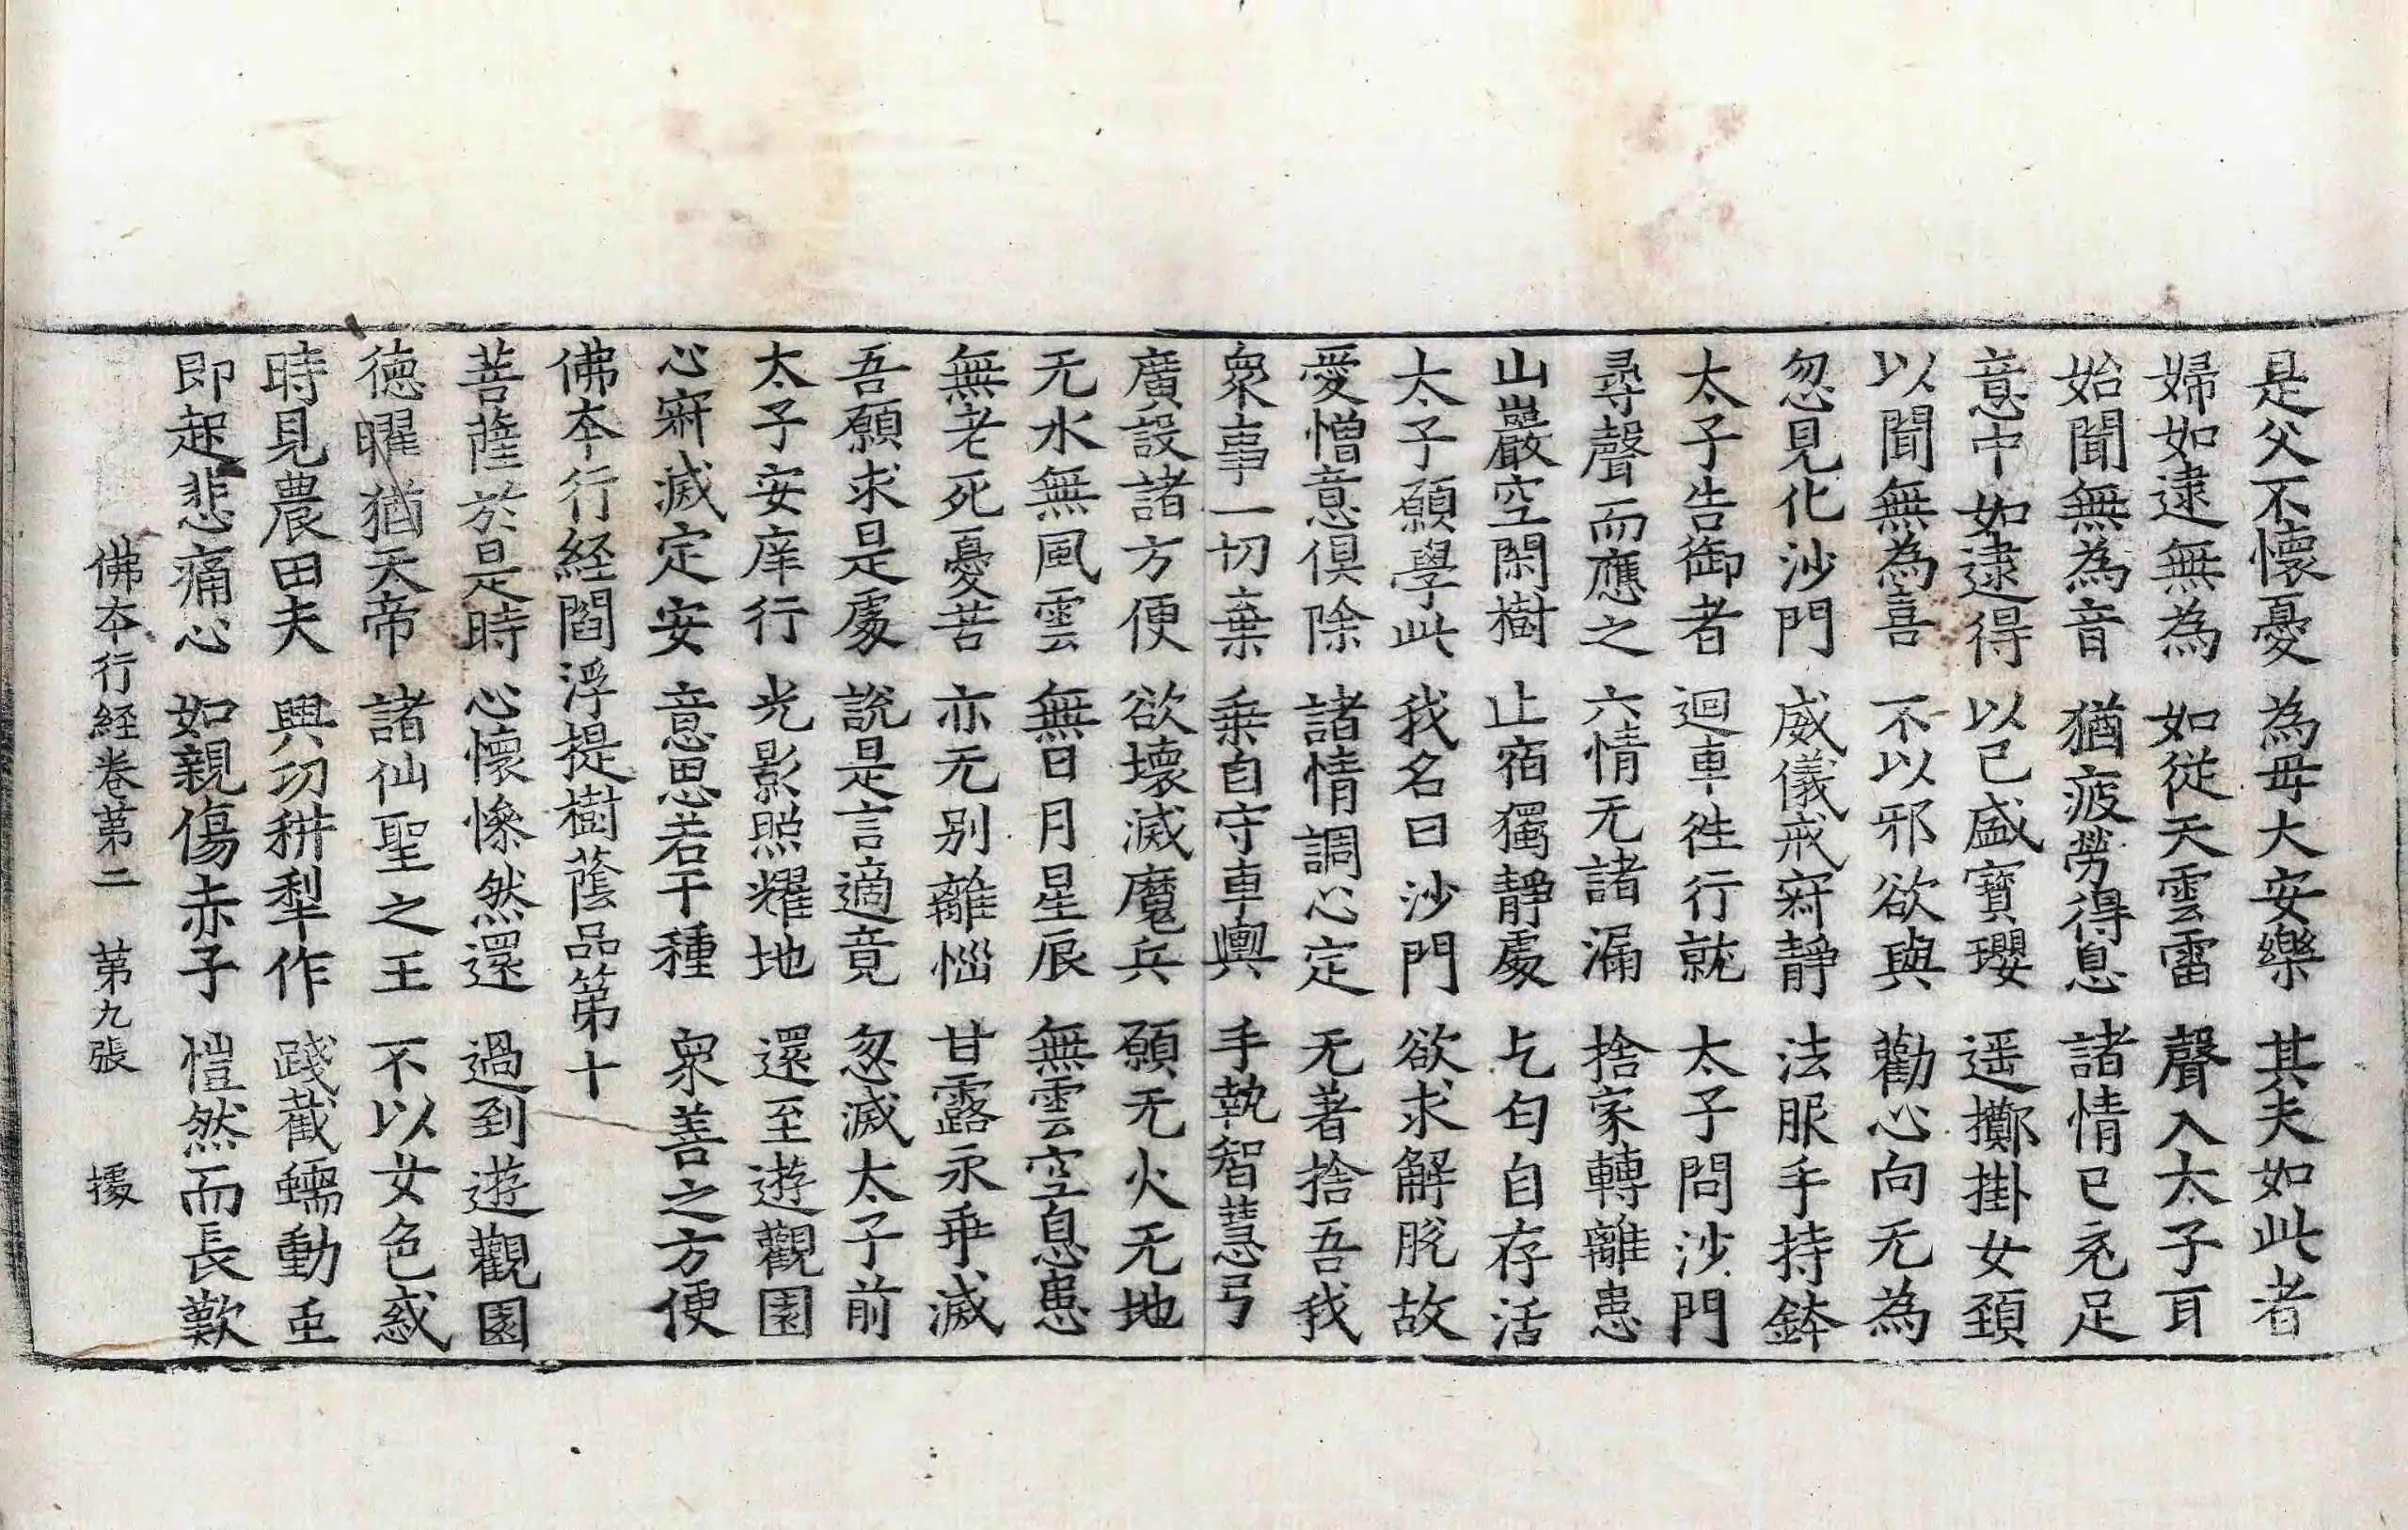 是父不懷憂　為毋大安樂　其夫如此者
婦如逮無為　如從天雲雷　聲入太子耳
始聞無為音　猶疲勞得息　諸情已充足
意中如逮得　以己盛寶瓔　遥擲掛女頚
以聞無為喜　不以邪欲與　勸心向无為
忽見化沙門　威儀戒𡧯靜　法服手持鉢
太子告御者　迴車徃行就　太子問沙門
尋聲而應之　六情无諸漏　捨家轉離患
山巖空閑樹　止宿獨靜處　乞匄自存活
太子願學此　我名曰沙門　欲求解脫故
愛憎意俱除　諸情調心定　无著捨吾我
衆事一切棄　乗自守車輿　手執智慧弓
廣設諸方便　欲壞滅魔兵　願无火无地
无水無風雲　無日月星辰　無雲空息患
無老死憂苦　亦无别離惱　甘露永乖滅
吾願求是處　說是言適竟　忽滅太子前
太子安庠行　光影照耀地　還至遊觀園
心𡧯滅定安　意思若干種　衆善之方便
佛夲行経閻浮提樹蔭品第十
菩薩於是時　心懷慘然還　過到遊觀園
徳曜猶天帝　諸仙聖之王　不以女色惑
時見農田夫　興功耕犁作　踐截蠕動䖝
即起悲痛心　如親傷赤子　愷然而長歎
佛夲行経卷苐二　苐九張　據